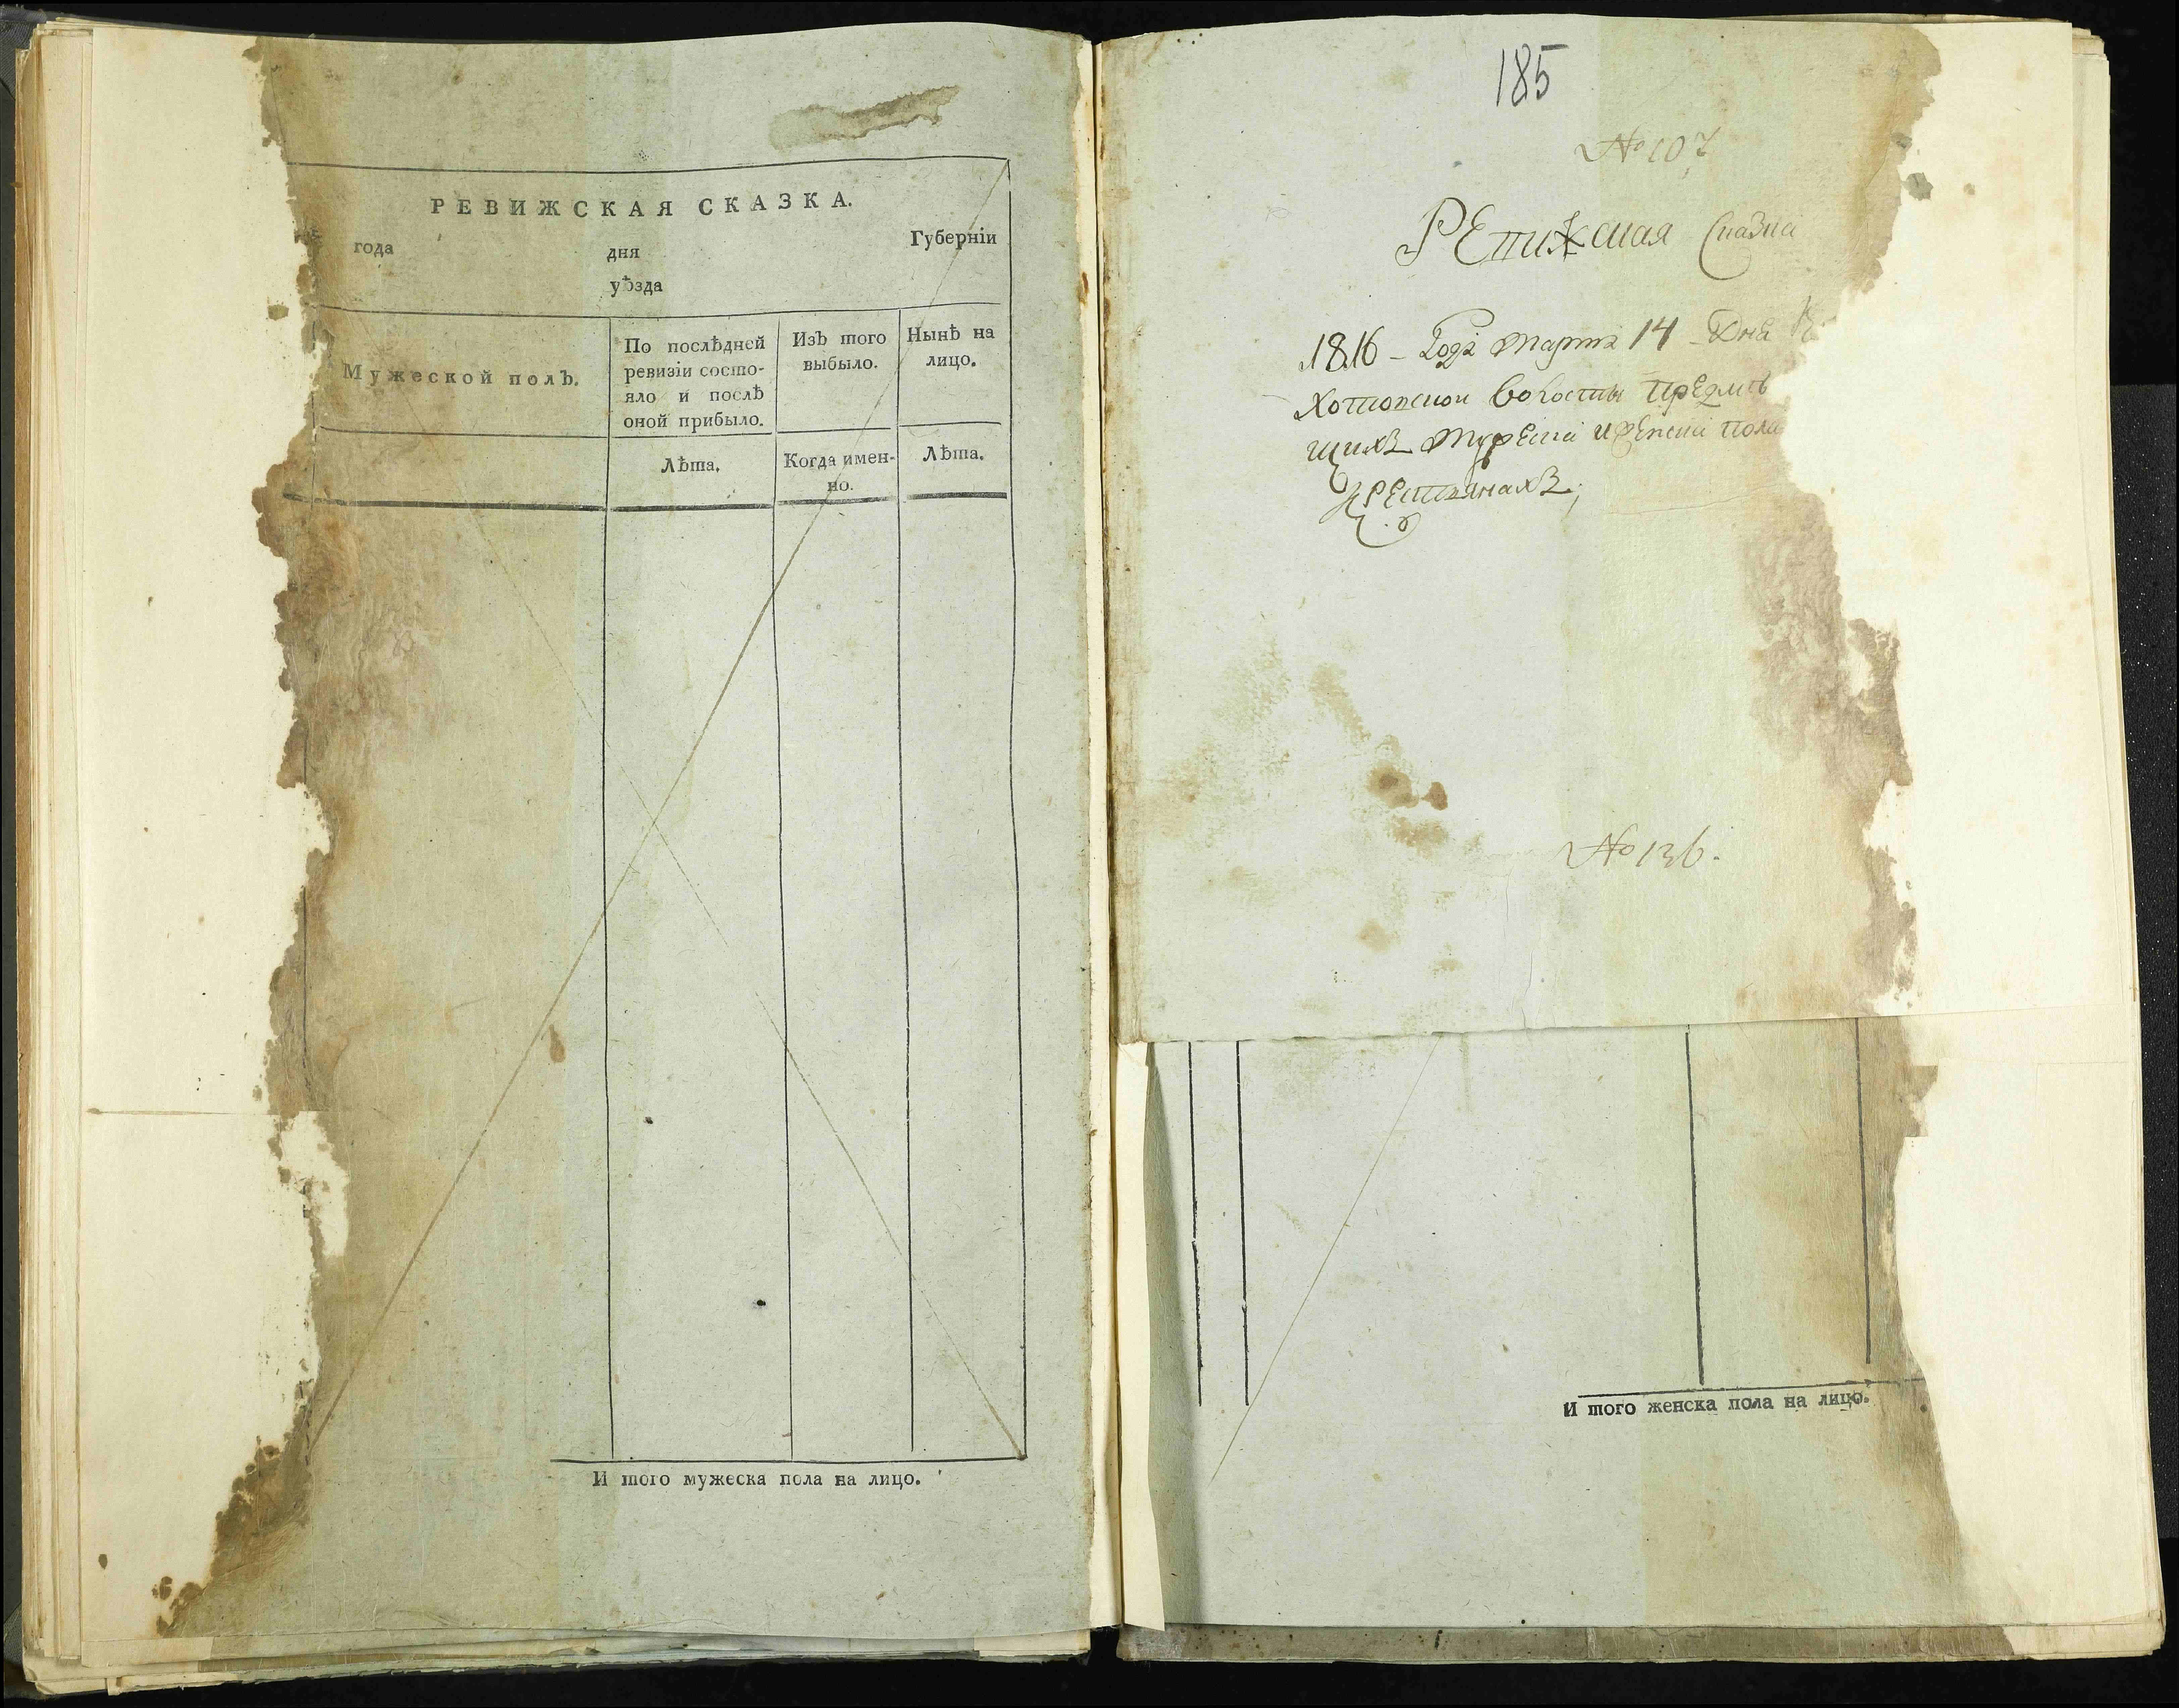 РЕВИЖСКАЯ СКАЗКА.
года дня Губерніи
уѣзда
Мужеской полъ.
По послѣдней ревизіи состо-
яло и послѣ
оной прибыло.
Изъ того
выбыло.
Нынѣ на
лицо.
Лѣта.
Когда имен-
но.
Лѣта.
И того мужеска пола на лицо.
185
№ 107
Ревижская Сказка
1816 - Года марта 14 Дня
Хотовской волости
щихъ мужеска и женска пола
крестьянахъ;
№ 136.
И того женска пола на лицо.